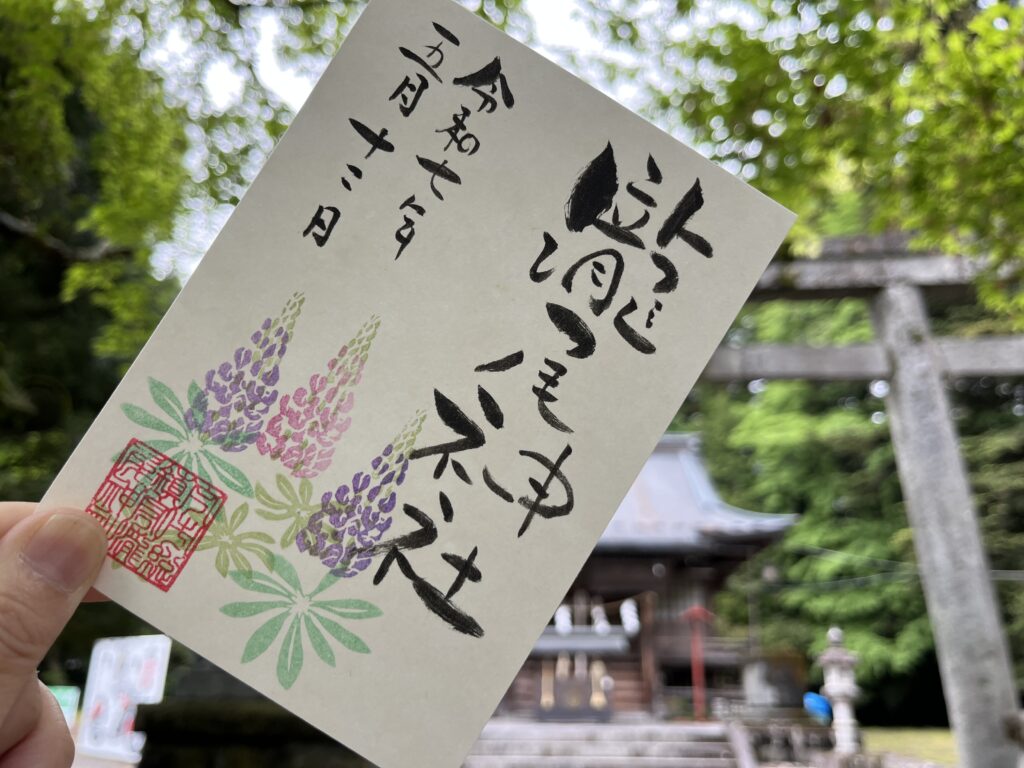 瀧尾神社
令和七年
五月十二日